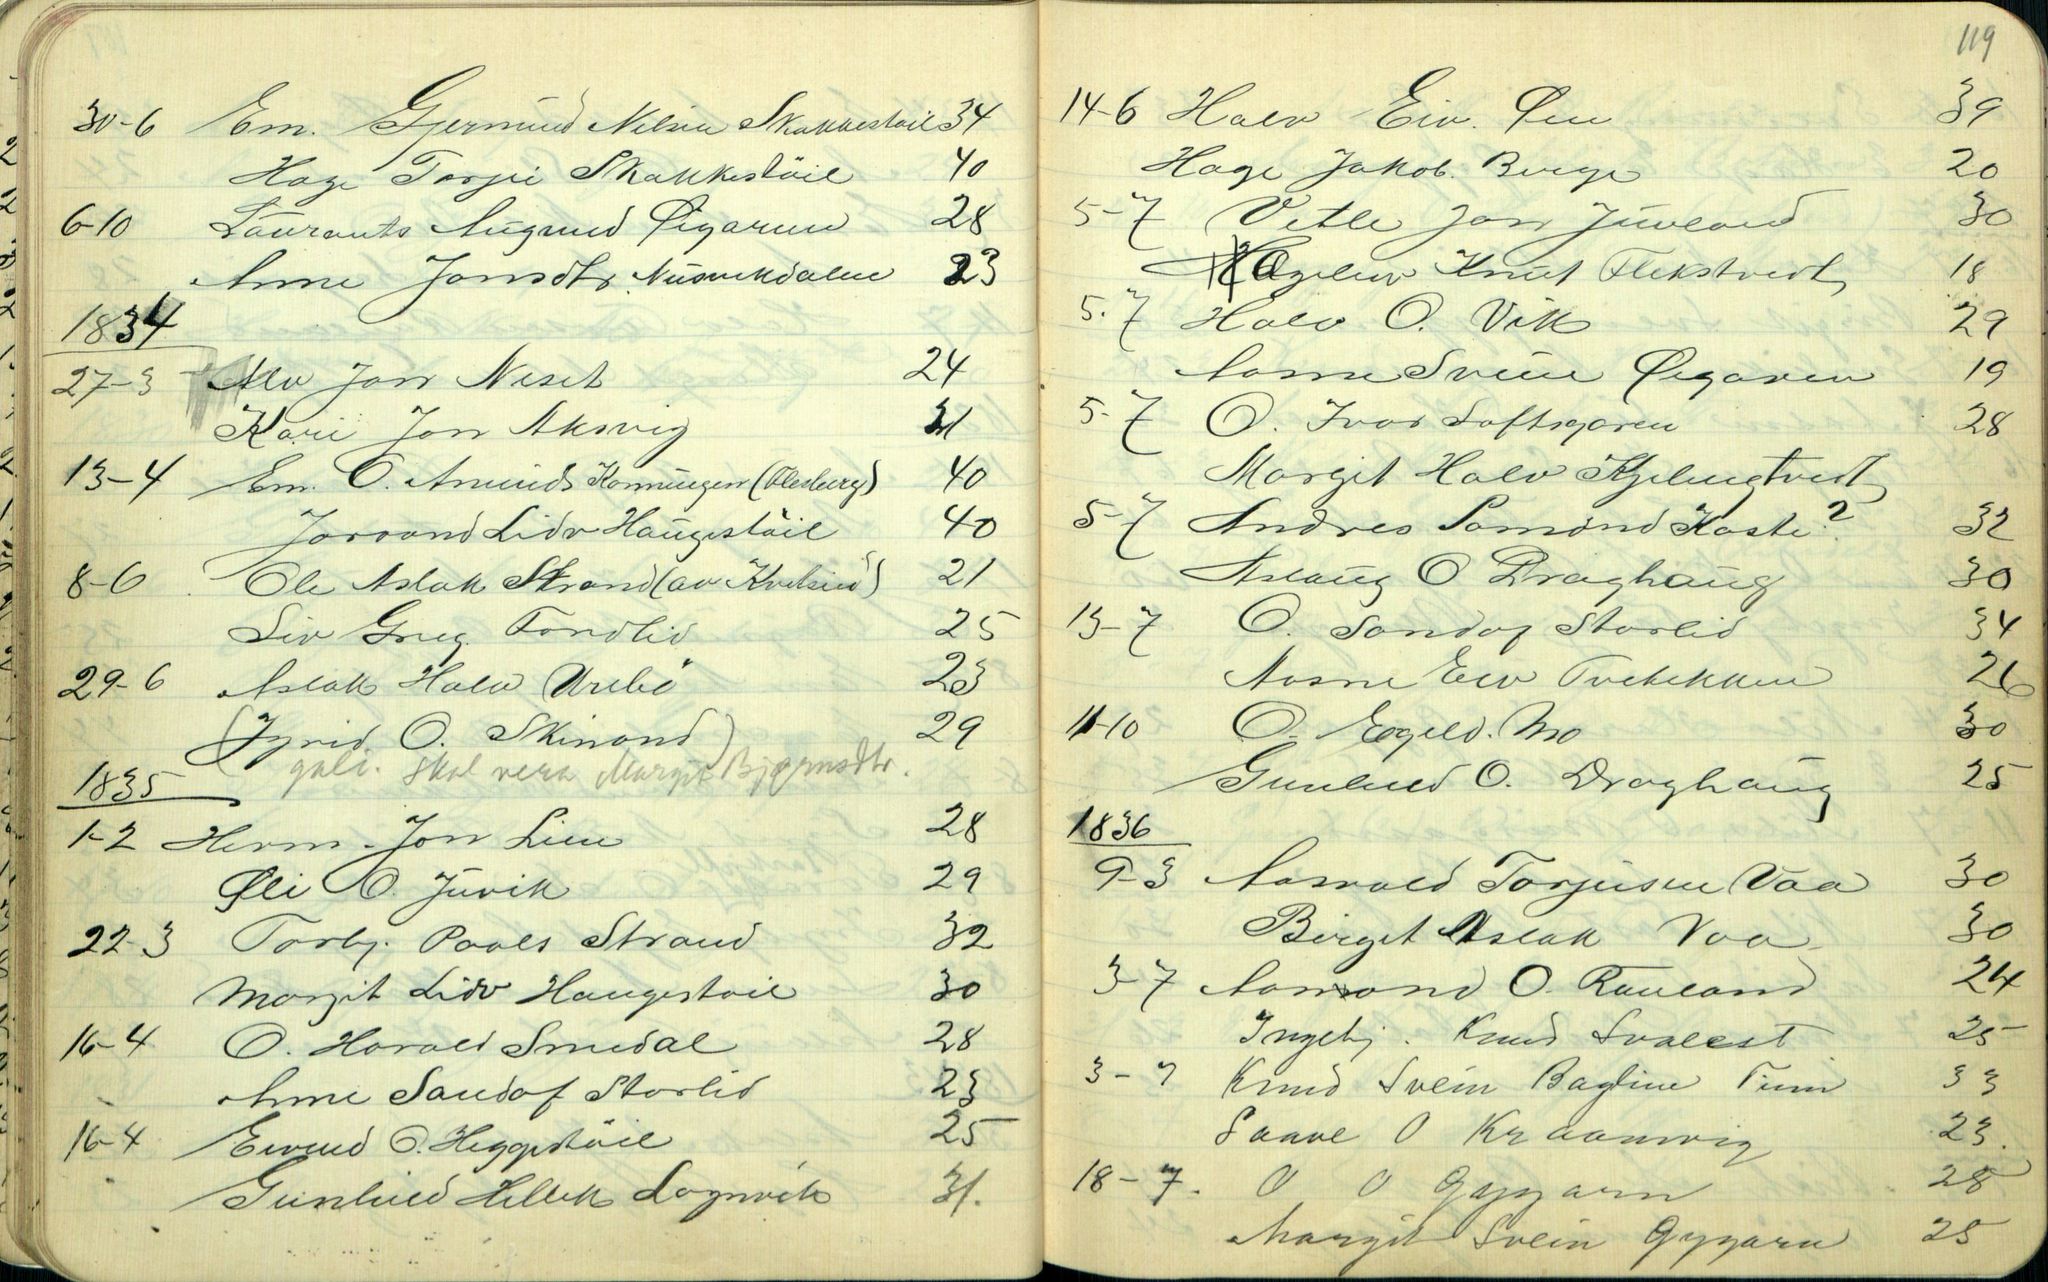 30-6 Em. Gjermund Nilsen Skakkestøil 34
Hage Torjei Skakkestöil 40
6-10 Laurants Augund Øigarune 28
Anne Jonsdtr. 23
1834
27-3 Alv Jon Neset 24
Kari Jon Aksvig 21
13-4 Em. O. Amunds Konnungen (Flesberg) 40
Joraand Lidv Haugestöil 40
8-6 Ole Aslak Strand (av Kvitsind) 21
Liv Greg. Fondlid 25
29-6 Aslak Halv Urebö 23
(Jyrid O. Skinand) 29
gali. Skal vera Margit Bjørnsdtr.
1835
1-2 Herm. Jon Lien 28
Øli O. Juvik 29
22-3 Torbj. Paals Strand 32
Margit Lidv Haugestøil 30
16-4 O. Harald Smedal 28
Anne Sandof Storlid 23
16-4 Eivind O. Heggestöil 25
Gunhild Hellek Lognvik 31.
119
14-6 Halv Eiv. Øen 39
Hage Jakob. Berge 20
5-7 Vetle Jon Juvland 30
Knut Flekstvedt 18
5-7 Halv O. Vik 29
Aasne Svein Øigaren 19
5-7 O. Ivar Loftsgaren 28
Margit Halv
5-7 Andres Samond Haste? 32
Aslaug O Draghaug 30
13-7 O. Sandof Storlid 34
Aasne Eiv Tvehekken 26
11-10 O. Egeld. Mo 30
Gunhild O. Draghaug 25
1836
9-3 Aasvald Torjusen Vaa 30
Birgit Aslak Vaa 30
3-7 Aamond O. Rauland 24
Ingebj. Knud Svalest 25
3-7 Knud Svein Bagline Finn 33
Saave O Kraamvig 23.
18-7. O O Gyygarn 28
Margit Svein Gyygarn 25